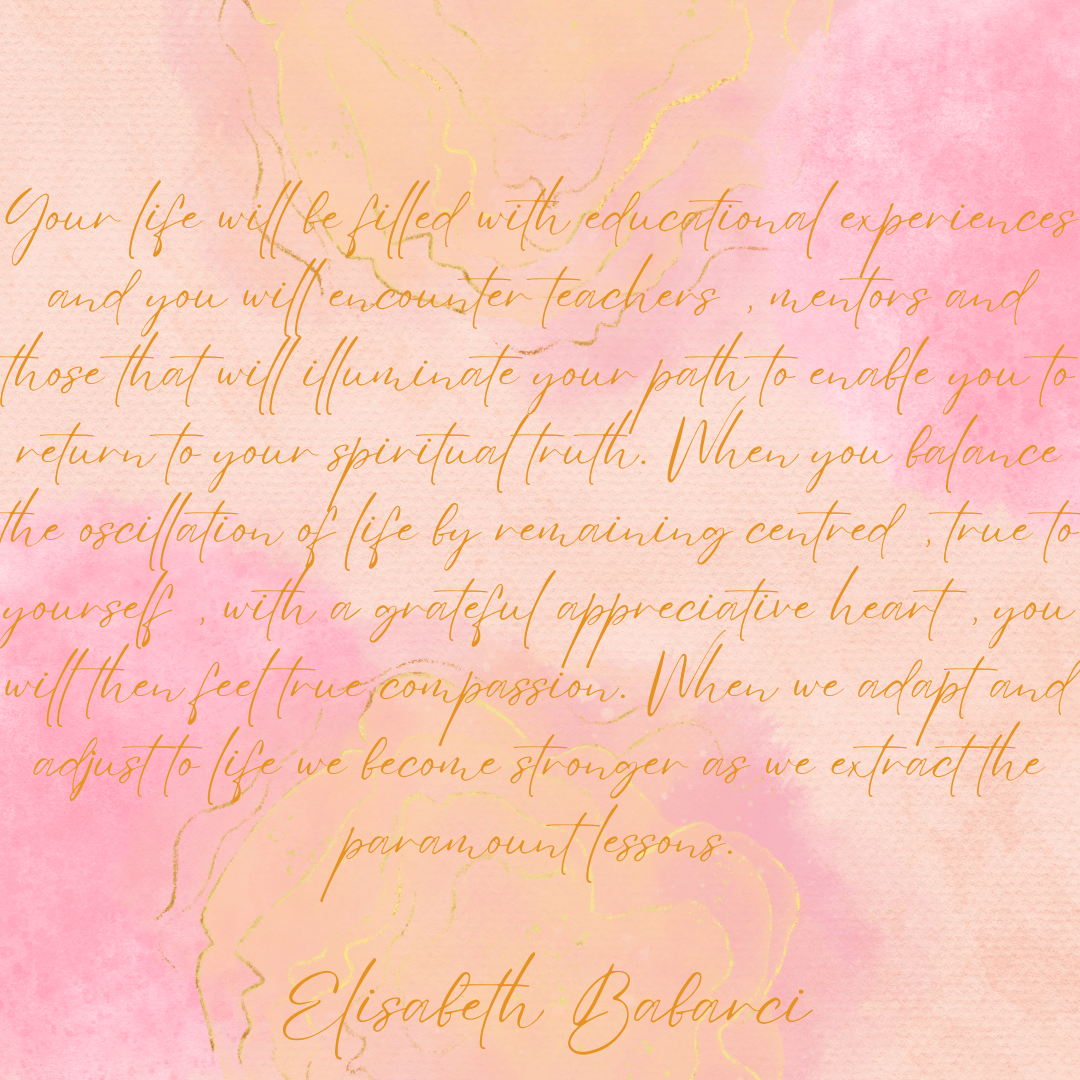 Your life will be filled with educational experiences
and you will encounter teachers , mentors and
those that will illuminate your path to enable you to
return to your spiritual truth. When you balance
the oscillation of life by remaining centred , true to
yourself , with a grateful appreciative heart , you
will then feel true compassion. When we adapt and
adjust to life we become stronger as we extract the
paramount lessons.
Elisabeth Babarci